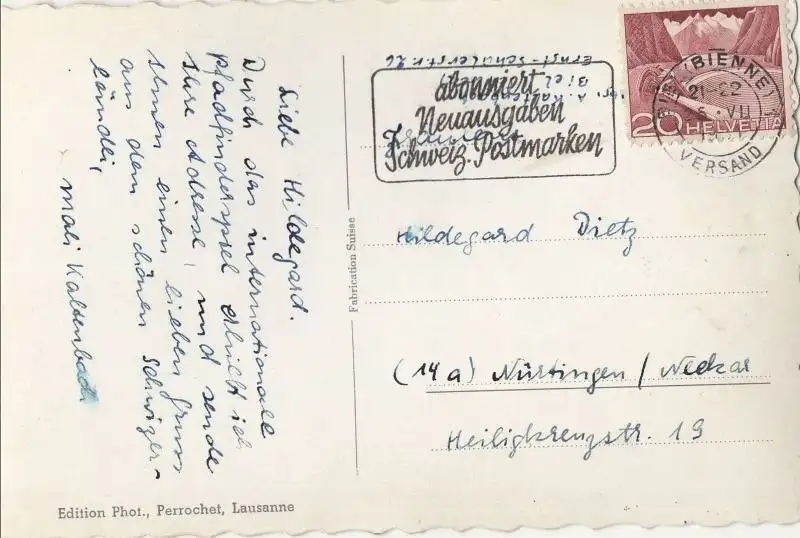 Liebe Hildegard.
Durch das internationale
Pfadfinderspiel erhielt ich
Ihre Adresse, und sende
Ihnen einen lieben Gruss
aus dem schönen Schwizer-
ländli,
Mali Kaltenbach
Edition Phot., Perrochet, Lausanne
Fabrication Suisse
Ernst-Schülerstr. 26
Biel
abonniert
Neuausgaben
Schweiz. Postmarken
BIENNE
21-22
VII
VERSAND
20 HELVETIA
Hildegard Dietz
(14a) Nürtingen / Neckar
Heiligkreuzstr. 19